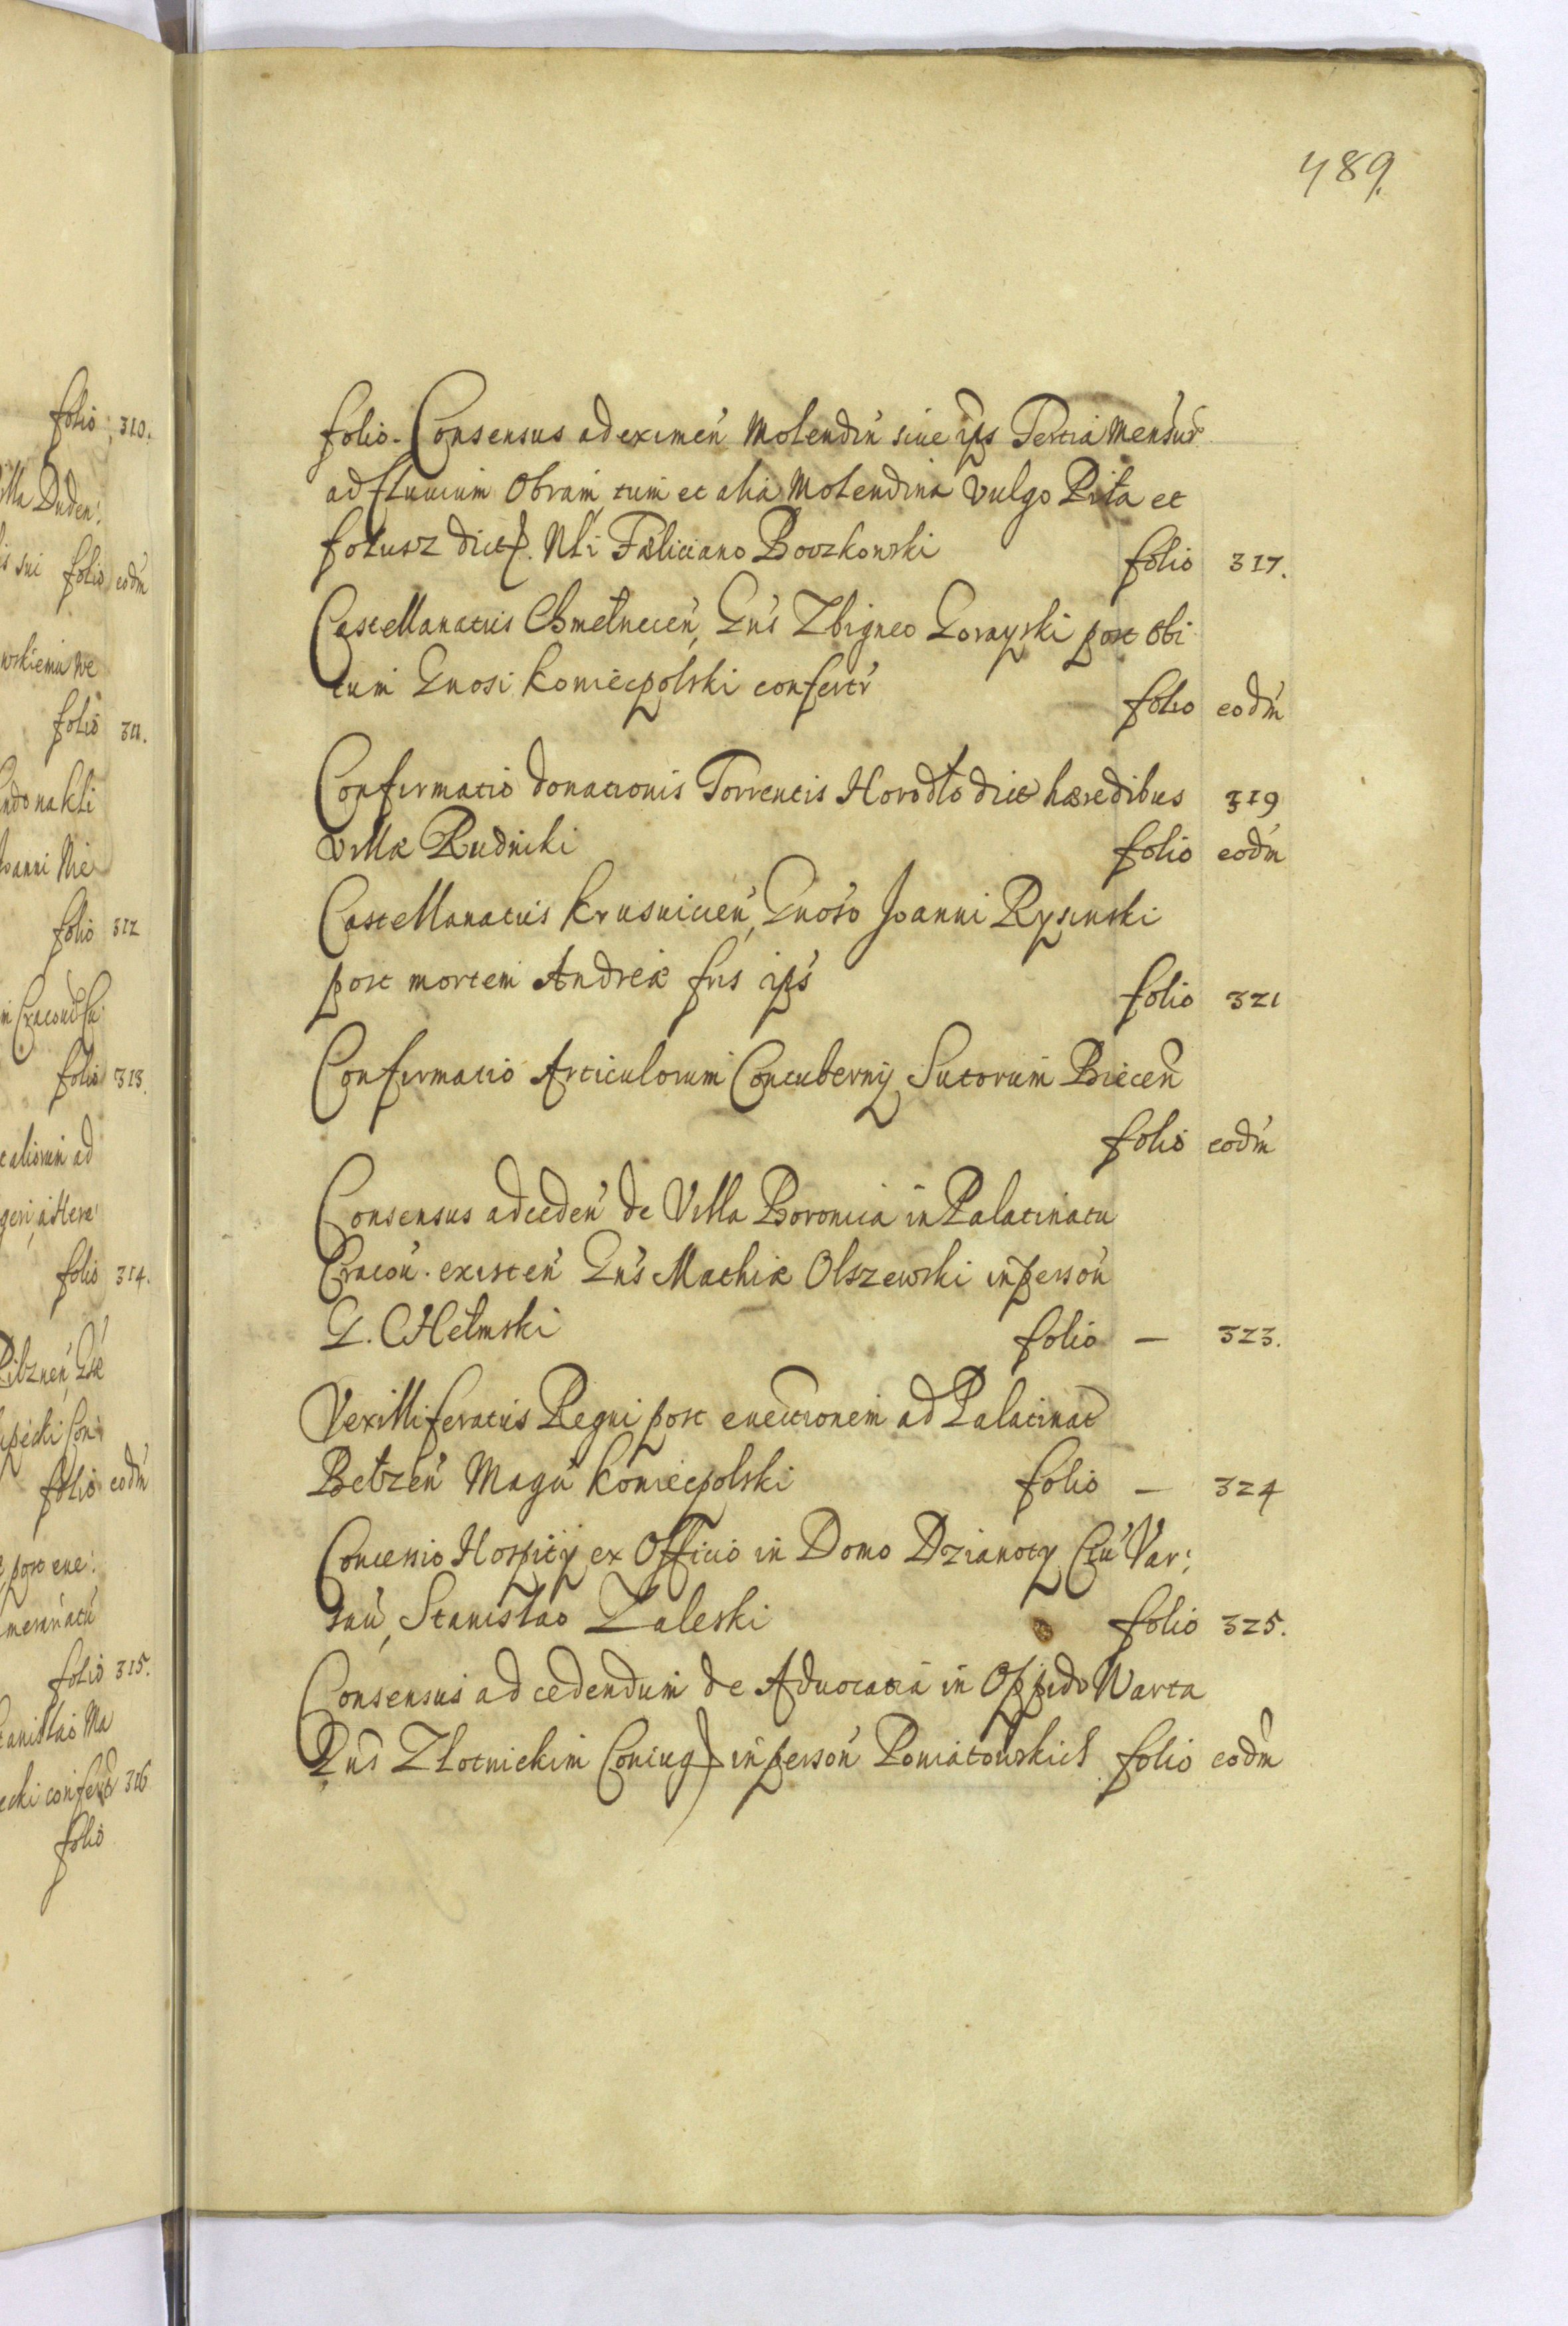 folio 310.
illa Duden:
is sui folio eodm
wskiemu we
folio 311.
nakli
Joanni Nie
folio 312
folio 313.
taliorum ad
folio 314.
Pilznen
folio eodm
post eue:
folio 315.
Stanislao Ma
316
folio
489.
folio. Consensus ad eximen Molendin siue ips Tertia Mensur
ad fluuium Obram, tum et alia Molendina vulgo Piła et
folusz dict. Nli Fæliciano Borzkowski folio 317.
Castellanatus Chmelnicen, Gns Zbigneo Gorayski post obi
tum Gnosi Koniecpolski confertr folio eodm
Confirmatio donationis Torrentis Horodło dict hæredibus 319
Villæ Rudniki folio eodm
Castellanatus Krusuicien, Gnoso Joanni Rysinski
post mortem Andreæ fris ips folio 321
Confirmatio Articulorum Contubernij Sutorum Biecen
folio eodm
Consensus ad ceden de Villa Boronica in Palatinatu
Cracou. existen Gns Mathiæ Olszewski in person
G. CHełmski folio — 323.
Vexilliferatus Regni post euectionem ad Palatinat
Bełzen Magn Koniecpolski folio — 324
Concessio Hospitij ex Officio in Domo Dzianoty Ciu Var:
sau, Stanislao Zaleski folio 325.
Consensus ad cedendum de Aduocatia in Oppido Warta
Gns Złotnickim Coniug in person Poniatowskich folio eodm